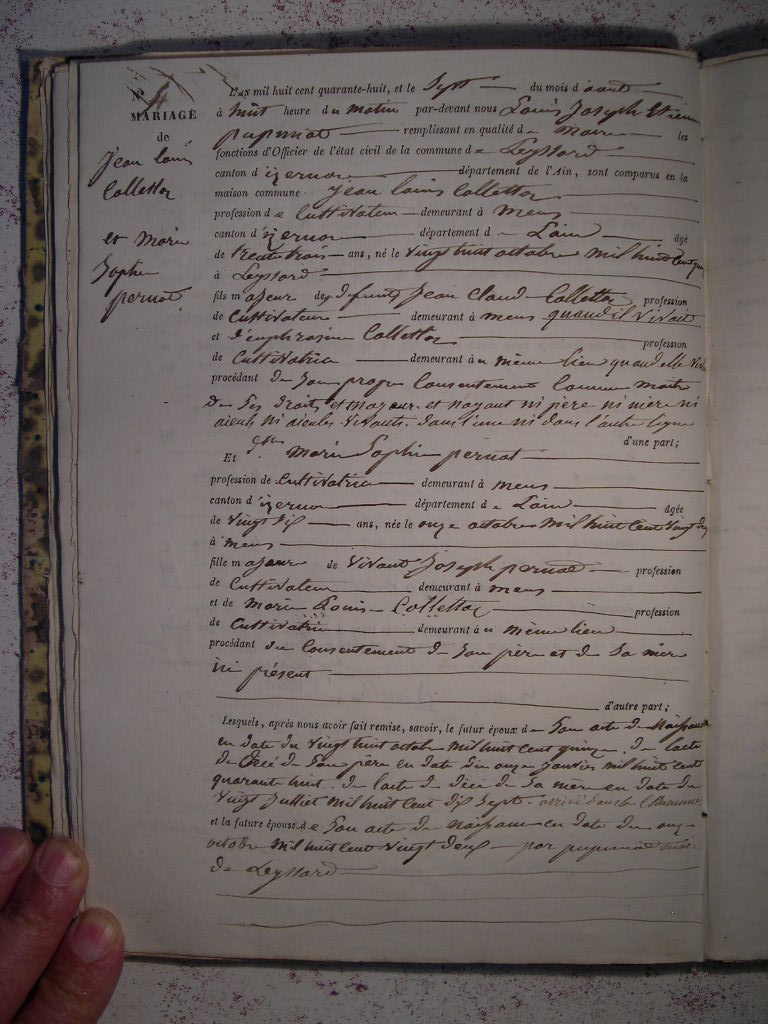 N° 4
MARIAGE
de
Jean Louis
Collettaz
et Marie
Sophie
pernod
L'AN mil huit cent quarante-huit, et le Sept du mois d'aout
à huit heure du matin par-devant nous Louis Joseph Etienne
remplissant en qualité de Maire les
fonctions d'Officier de l'état civil de la commune de Leyssard
canton d'izernore département de l'Ain, sont comparus en la
maison commune Jean Louis Collettaz
profession de Cultivateur demeurant à mens
canton d'izernore département de L'ain âgé
de trente trois ans, né le vingt huit octobre mil huit cent
à Leyssard
fils majeur des defunts Jean Claude Collettaz profession
de Cultivateur demeurant à mens quand il vivait
et d'euphrasine Collettaz profession
de Cultivatrice demeurant au même lieu quand elle
procédant de son propre Consentement Comme maitre
De Ses droits et majeur et n'ayant ni père ni mère ni
aieuls ni aieules vivants dans l'une ni dans l'autre ligne
d'une part;
Et Marie Sophie pernod
profession de Cultivatrice demeurant à mens
canton d'izernore département de L'ain âgée
de vingt six ans, née le onze octobre mil huit Cent vingt deux
à mens
fille majeure de vivant Joseph pernod profession
de Cultivateur demeurant à mens
et de Marie Louise Collettaz profession
de Cultivatrice demeurant au même lieu
procédant du Consentement de Son père et de Sa mère
ici présent
d'autre part;
Lesquels, après nous avoir fait remise, savoir, le futur époux de Son acte de Naissance
en date du vingt huit octobre mil huit cent quinze, de l'acte
de décé de Son père en date du onze janvier mil huit cent
quarante huit, de l'acte de décé de Sa mère en date du
vingt Juillet mil huit cent dix Sept
et la future épouse de Son acte de naissance en date du onze
octobre mil huit cent vingt deux par
de Leyssard